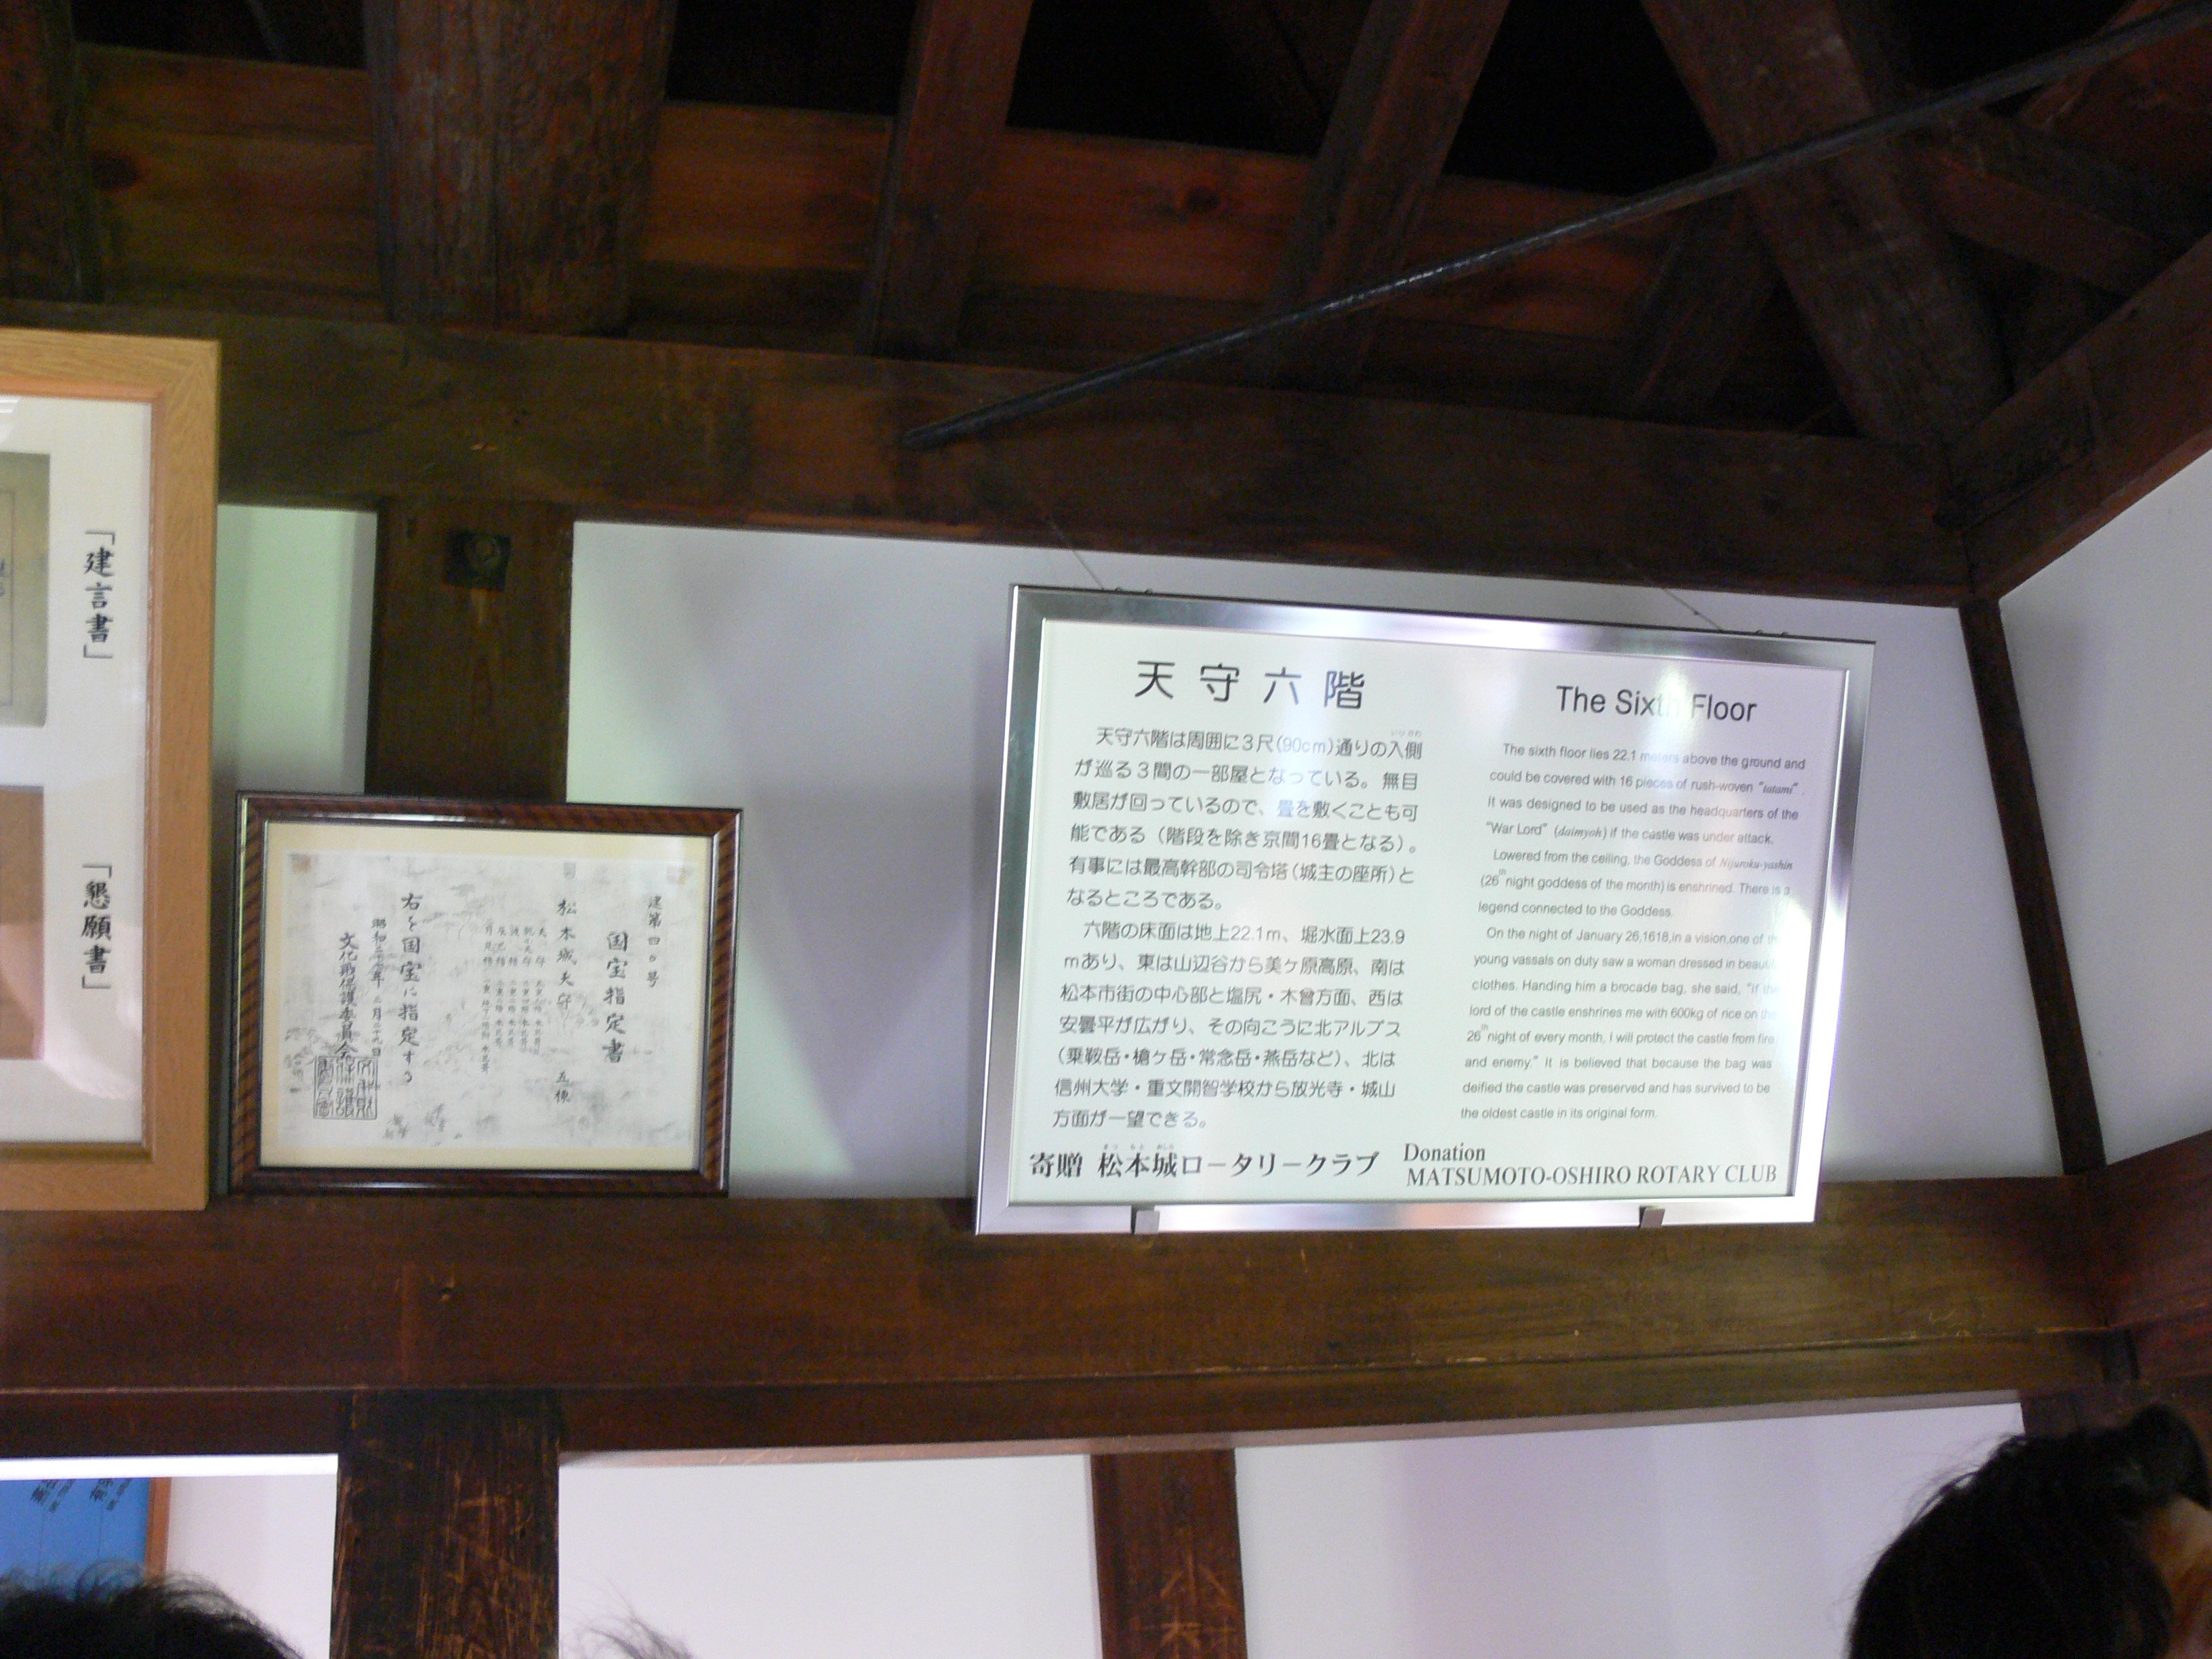 「建言書」
「懇願書」
建第四〇号
国宝指定書
松本城天守 五棟
右を国宝に指定する
昭和二十七年三月二十九日
文化財保護委員会
天守六階
天守六階は周囲に3尺(90cm)通りの入側
が巡る3間の一部屋となっている。無目
敷居が回っているので、畳を敷くことも可
能である(階段を除き京間16畳となる)。
有事には最高幹部の司令塔(城主の座所)と
なるところである。
六階の床面は地上22.1m、堀水面上23.9
mあり、東は山辺谷から美ヶ原高原、南は
松本市街の中心部と塩尻・木曽方面、西は
安曇平が広がり、その向こうに北アルプス
(乗鞍岳・槍ヶ岳・常念岳・燕岳など)、北は
信州大学・重文開智学校から放光寺・城山
方面が一望できる。
寄贈 松本城ロータリークラブ
The Sixth Floor
The sixth floor lies 22.1 meters above the ground and
could be covered with 16 pieces of rush-woven "tatami".
It was designed to be used as the headquarters of the
"War Lord" (daimyoh) if the castle was under attack.
Lowered from the ceiling, the Goddess of Nijuroku-yashin
(26th night goddess of the month) is enshrined. There is a
legend connected to the Goddess.
On the night of January 26,1618,in a vision,one of th
young vassals on duty saw a woman dressed in beauti
clothes. Handing him a brocade bag, she said, "If the
lord of the castle enshrines me with 600kg of rice on the
26th night of every month, I will protect the castle from fire
and enemy." It is believed that because the bag was
deified the castle was preserved and has survived to be
the oldest castle in its original form.
Donation
MATSUMOTO-OSHIRO ROTARY CLUB